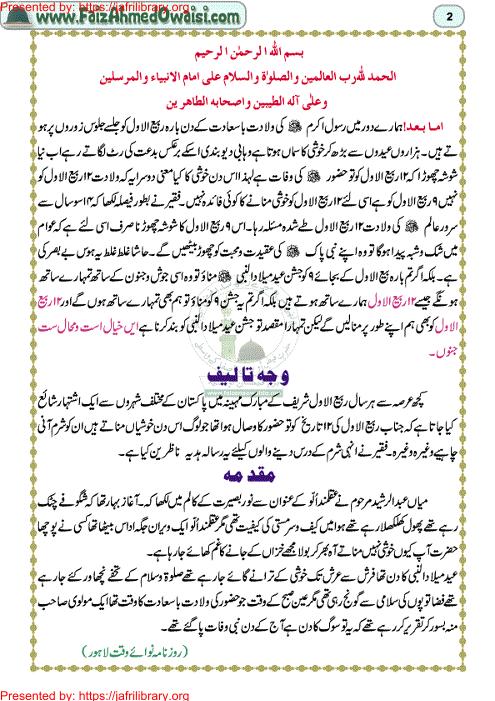 Presented by: https://jafrilibrary.com
www.FaizAhmedOwaisi.com
2
بسم اللہ الرحمٰن الرحیم
الحمد للہ رب العالمین والصلوٰۃ والسلام علی امام الانبیاء والمرسلین
وعلٰی آلہ الطیبین واصحابہ الطاھرین
اما بعد! ہمارے دور میں رسول اکرم ﷺ کی ولادت با سعادت کے دن بارہ ربیع الاول کو جلسے جلوس زوروں پر ہو
تے ہیں۔ ہزاروں عیدوں سے بڑھ کر خوشی کا سماں ہوتا ہے وہابی دیوبندی اسکے برعکس بدعت کی رٹ لگاتے رہے اب نیا
شوشہ چھوڑا کہ ۱۲ ربیع الاول کو تو حضور ﷺ کی وفات ہے لہذا اس دن خوشی کا کیا معنی دوسرا یہ کہ ولادت ۱۲ ربیع الاول کو
نہیں ۹ ربیع الاول کو ہے اسی لئے ۱۲ ربیع الاول کو خوشی منانے کا کوئی فائدہ نہیں۔ فقیر نے بطور فیصلہ لکھا کہ ۱۴ سو سال سے
سرور عالم ﷺ کی ولادت ۱۲ ربیع الاول طے شدہ مسئلہ رہا۔ اس ۹ ربیع الاول کا شوشہ چھوڑنا صرف اسی لئے ہے کہ عوام
میں شک وشبہ پیدا ہوگا تو وہ اپنے نبی پاک ﷺ کی عقیدت ومحبت کو چھوڑ بیٹھیں گے۔ حاشا غلط غلط یہ ہوس بے بصر کی
ہے۔ بلکہ اگر تم بارہ ربیع الاول کے بجائے ۹ کو جشن عید میلاد النبی ﷺ مناؤ تو وہ اسی جوش وجنون کے ساتھ تمہارے ساتھ
ہونگے جیسے ۱۲ ربیع الاول ہمارے ساتھ ہوتے ہیں بلکہ اگر تم یہ جشن ۹ کو مناؤ تو ہم بھی تمہارے ساتھ ہوں گے اور ۱۲ ربیع
الاول کو بھی ہم اپنے طور پر منالیں گے لیکن تمہارا مقصد تو جشن عید میلاد النبی کو بند کرنا ہے ایں خیال است ومحال ست
جنوں۔
وجہ تالیف
کچھ عرصہ سے ہر سال ربیع الاول شریف کے مبارک مہینہ میں پاکستان کے مختلف شہروں سے ایک اشتہار شائع
کیا جاتا ہے کہ جناب ربیع الاول کی ۱۲ تاریخ کو تو حضور کا وصال ہوا تھا جو لوگ اس دن خوشیاں مناتے ہیں ان کو شرم آنی
چاہیے وغیرہ وغیرہ۔ فقیر نے انہی شرم کے درس دینے والوں کیلئے یہ رسالہ ہدیہ ناظرین کیا ہے۔
مقدمہ
میاں عبدالرشید مرحوم نے عقلمند اُلو کے عنوان سے نور بصیرت کے کالم میں لکھا کہ۔ آغاز بہار تھا کہ شگوفے چٹک
رہے تھے پھول کھلکھلا رہے تھے ہوا میں کیف وسرمستی کی کیفیت تھی مگر عقلمند اُلو ایک ویران جگہ اداس بیٹھا تھا کسی نے پوچھا
حضرت آپ کیوں خوشی نہیں مناتے آہ بھر کر بولا مجھے خزاں کے جانے کا غم کھائے جا رہا ہے۔
عید میلاد النبی کا دن تھا فرش سے عرش تک خوشی کے ترانے گائے جا رہے تھے صلوۃ وسلام کے تحفے نچھاور کئے جا رہے
تھے فضا توپوں کی سلامی سے گونج رہی تھی مگر عین صبح کے وقت جو حضور کی ولادت با سعادت کا وقت تھا ایک مولوی صاحب
منہ بسور کر تقریر کر رہے تھے کہ یہ تو سوگ کا دن ہے آج کے دن نبی وفات پا گئے تھے۔
(روزنامہ نوائے وقت لاہور)
Presented by: https://jafrilibrary.org